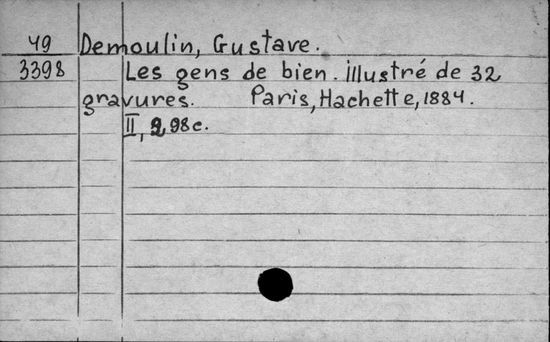 49 Demoulin, Gustave.
3398 Les gens de bien. illustré de 32
gravures. Paris, Hachette, 1884.
II, 298c.